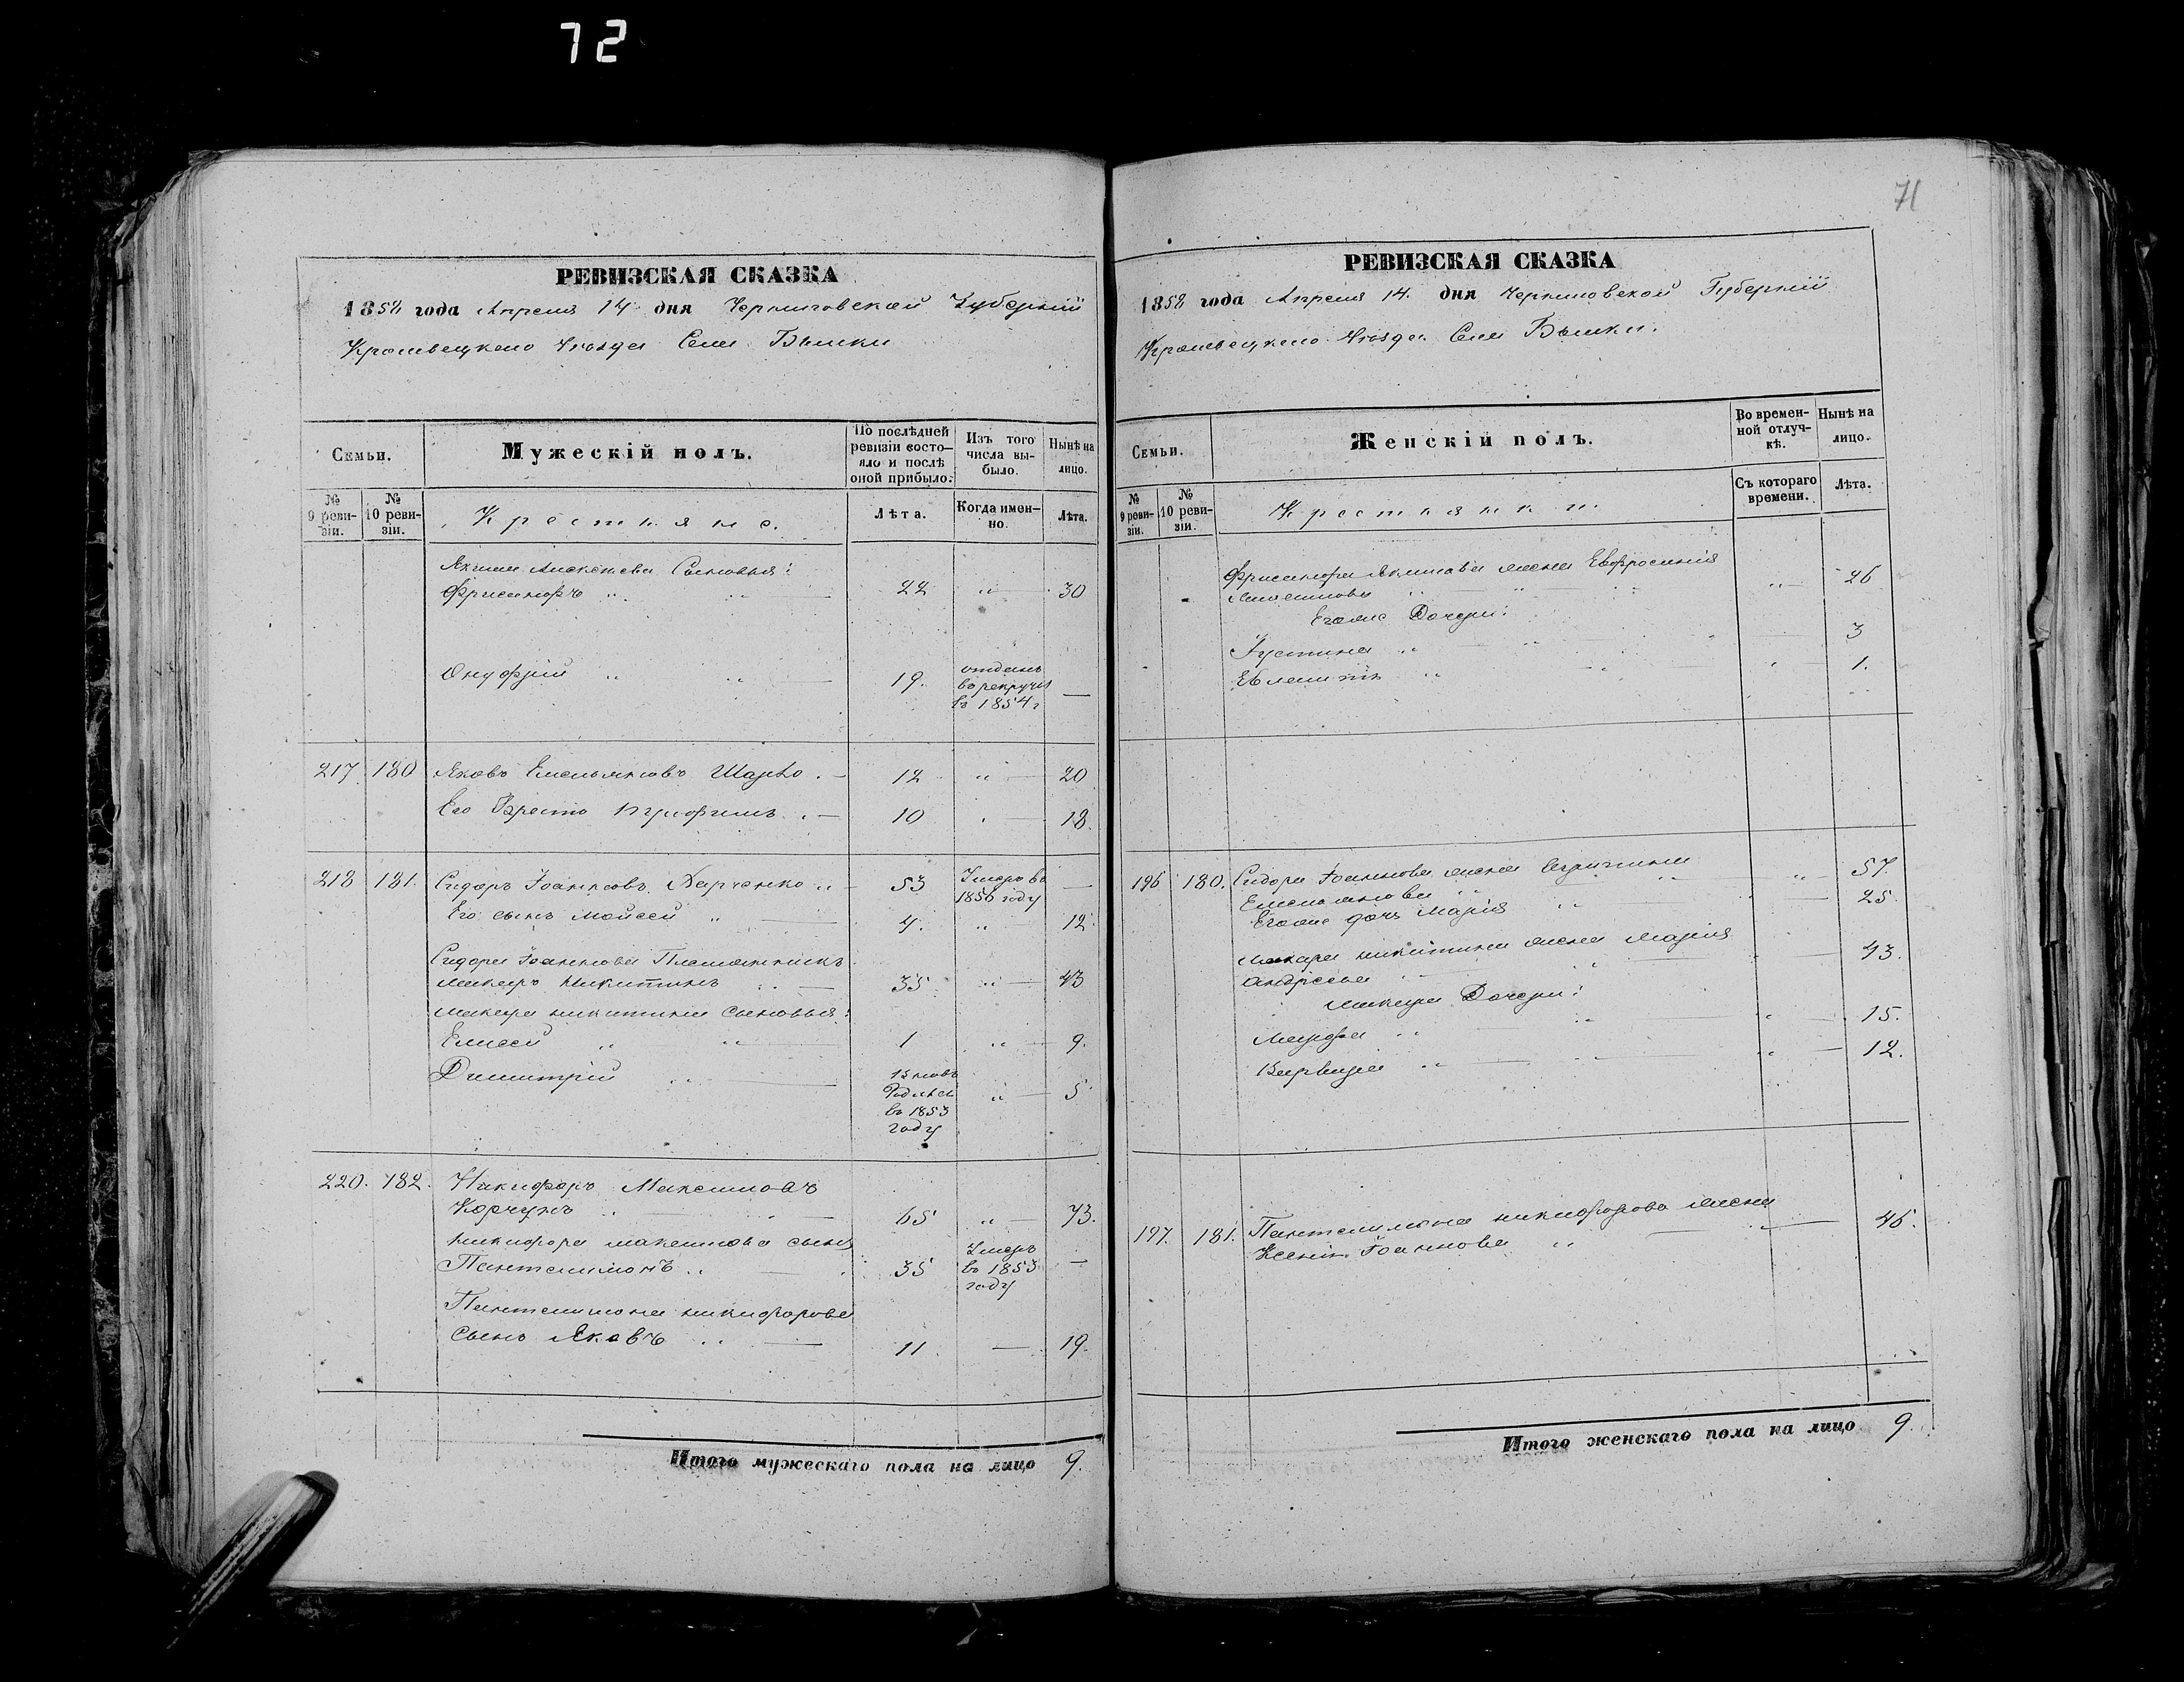 72
71
РЕВИЗСКАЯ СКАЗКА
1858 года Апреля 14 дня Черниговской Губерніи
Кролевецкаго Уѣзда Села
Семьи.
Мужескій полъ.
По послѣдней ревизіи состо-яло и послѣ оной прибыло.
Изъ того числа вы-было.
Нынѣ на лицо.
№ 9 реви-зіи.
№ 10 реви-зіи.
Крестьяне.
Лѣта.
Когда имен-но.
Лѣта.
Сыновья:
22 " 30
Онуфрій " " 19. отданъ
въ рекруты —
въ 1854 г
217 180 Яковъ Емельяновъ 12 " 20
Его Братъ Трофимъ 10 " 18.
218 181. Сидоръ Іоанновъ Харченко " 53 Умеръ въ —
1856 году
Его сынъ Мойсей " 4. " 12.
Сидора Іоаннова Племянникъ
Макаръ Никитинъ " 35 " 43
Макара Никитина сыновья:
Елисей " " 1 " 9.
Димитрій " вновь
родился " 5
въ 1853
году
220. 182. Никифоръ Максимовъ
Корчунъ " 65 " 73.
Никифора Максимова сынъ
Пантелимонъ " 35 Умеръ —
въ 1853
году
Пантелимона Никифорова
сынъ Яковъ " 11 — 19.
Итого мужескаго пола на лицо 9.
РЕВИЗСКАЯ СКАЗКА
1858 года Апреля 14. дня Черниговской Губерніи
Кролевецкаго Уѣзда Села
Семьи.
Женскій полъ.
Во времен-ной отлуч-кѣ.
Нынѣ на лицо.
№ 9 реви-зіи.
№ 10 реви-зіи.
Крестьянки.
Съ котораго времени.
Лѣта.
жена Евфросинія
" 26
Егоже Дочери:
Іустина " 3
" 1.
196 180. Сидора Іоаннова жена
Емельянова " 57.
Егоже дочь Марія " 25.
Макара Никитина жена Марія
Андреева " 43.
Макара Дочери:
Марфа " 15.
Варвара " 12.
197. 181. Пантелимона Никифорова жена
Ксенія Іоаннова " 46.
Итого женскаго пола на лицо 9.